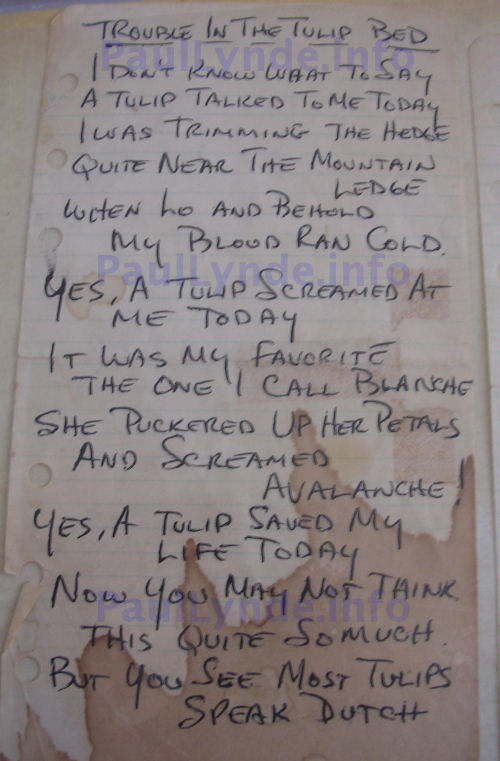 TROUBLE IN THE TULIP BED
PaulLynde.info
I DON'T KNOW WHAT TO SAY
A TULIP TALKED TO ME TODAY
I WAS TRIMMING THE HEDGE
QUITE NEAR THE MOUNTAIN
LEDGE
WHEN LO AND BEHOLD
MY BLOOD RAN COLD.
PaulLynde.info
YES, A TULIP SCREAMED AT
ME TODAY
IT WAS MY FAVORITE
THE ONE I CALL BLANCHE
SHE PUCKERED UP HER PETALS
AND SCREAMED
AVALANCHE!
YES, A TULIP SAVED MY
LIFE TODAY
NOW YOU MAY NOT THINK.
PaulLynde.info
THIS QUITE SO MUCH.
BUT YOU SEE MOST TULIPS
SPEAK DUTCH